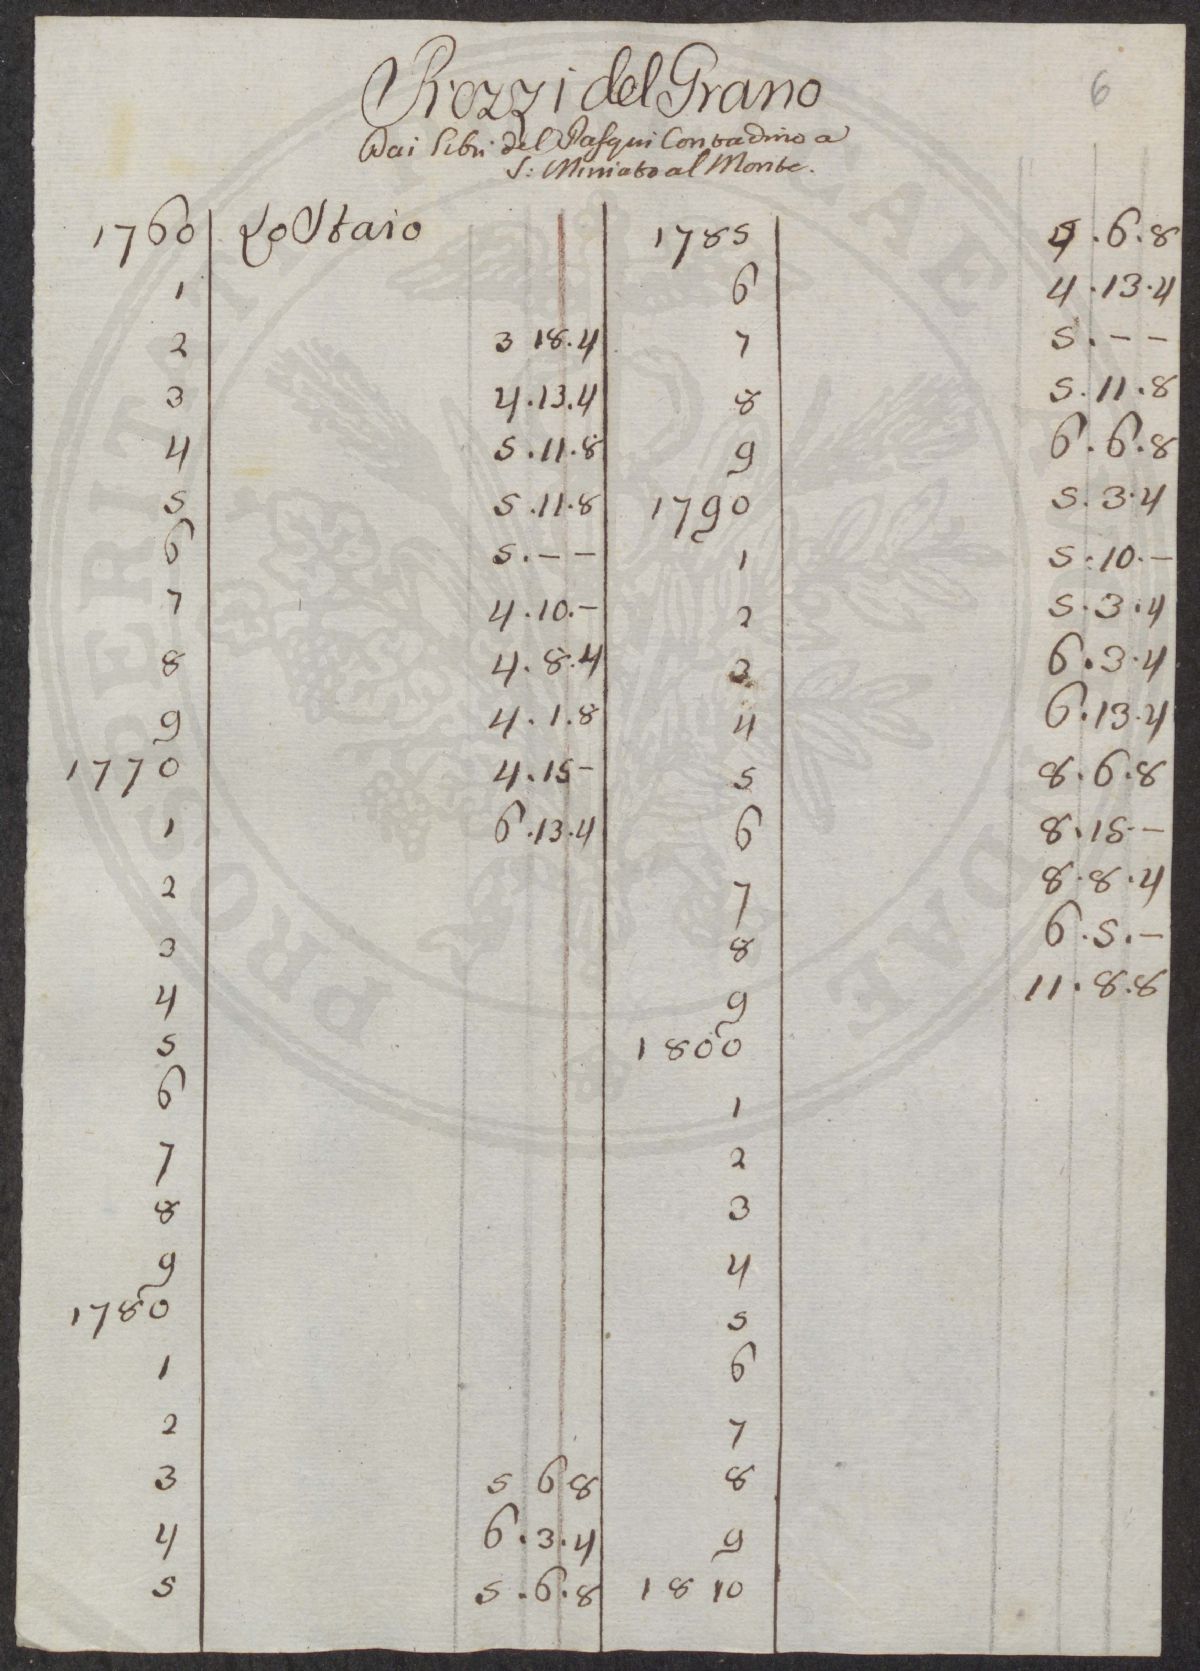 6
Prezzi del Grano
Dai libri del Pasqui Contadino a
S: Miniato al Monte.
1760 Lo Staio
1
2 3 18.4
3 4.13.4
4 5.11.8
5 5.11.8
6 5.--
7 4.10.-
8 4.8.4
9 4.1.8
1770 4.15-
1 6.13.4
2
3
4
5
6
7
8
9
1780
1
2
3 5 6 8
4 6.3.4
5 5.6.8
1785 5.6.8
6 4.13.4
7 5.--
8 5.11.8
9 6.6.8
1790 5.3.4
1 5.10.-
2 5.3.4
3 6.3.4
4 6.13.4
5 8.6.8
6 8.15.-
7 8.8.4
8 6.5.-
9 11.8.8
1800
1
2
3
4
5
6
7
8
9
1810